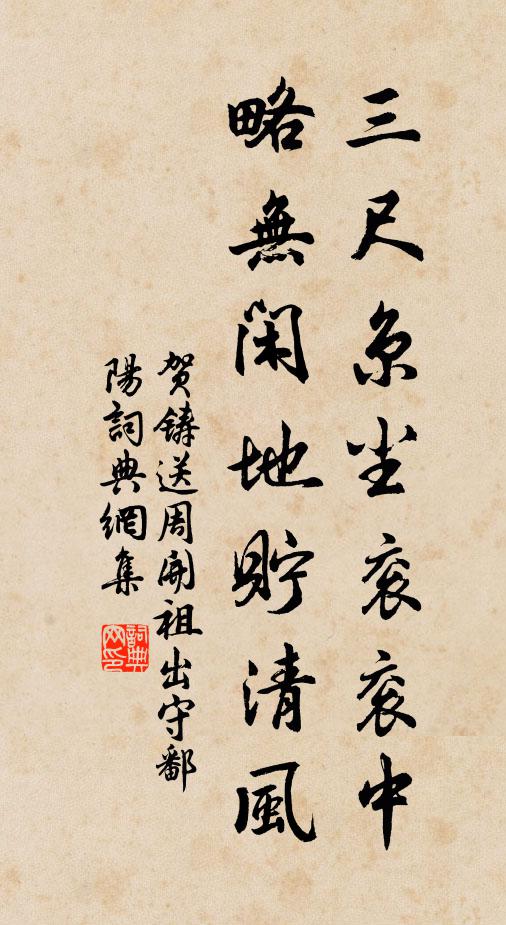 三尺京尘衮衮中
略無閑地貯清風
賀鑄送周開祖出守鄱
陽詞典網集
詞典網印